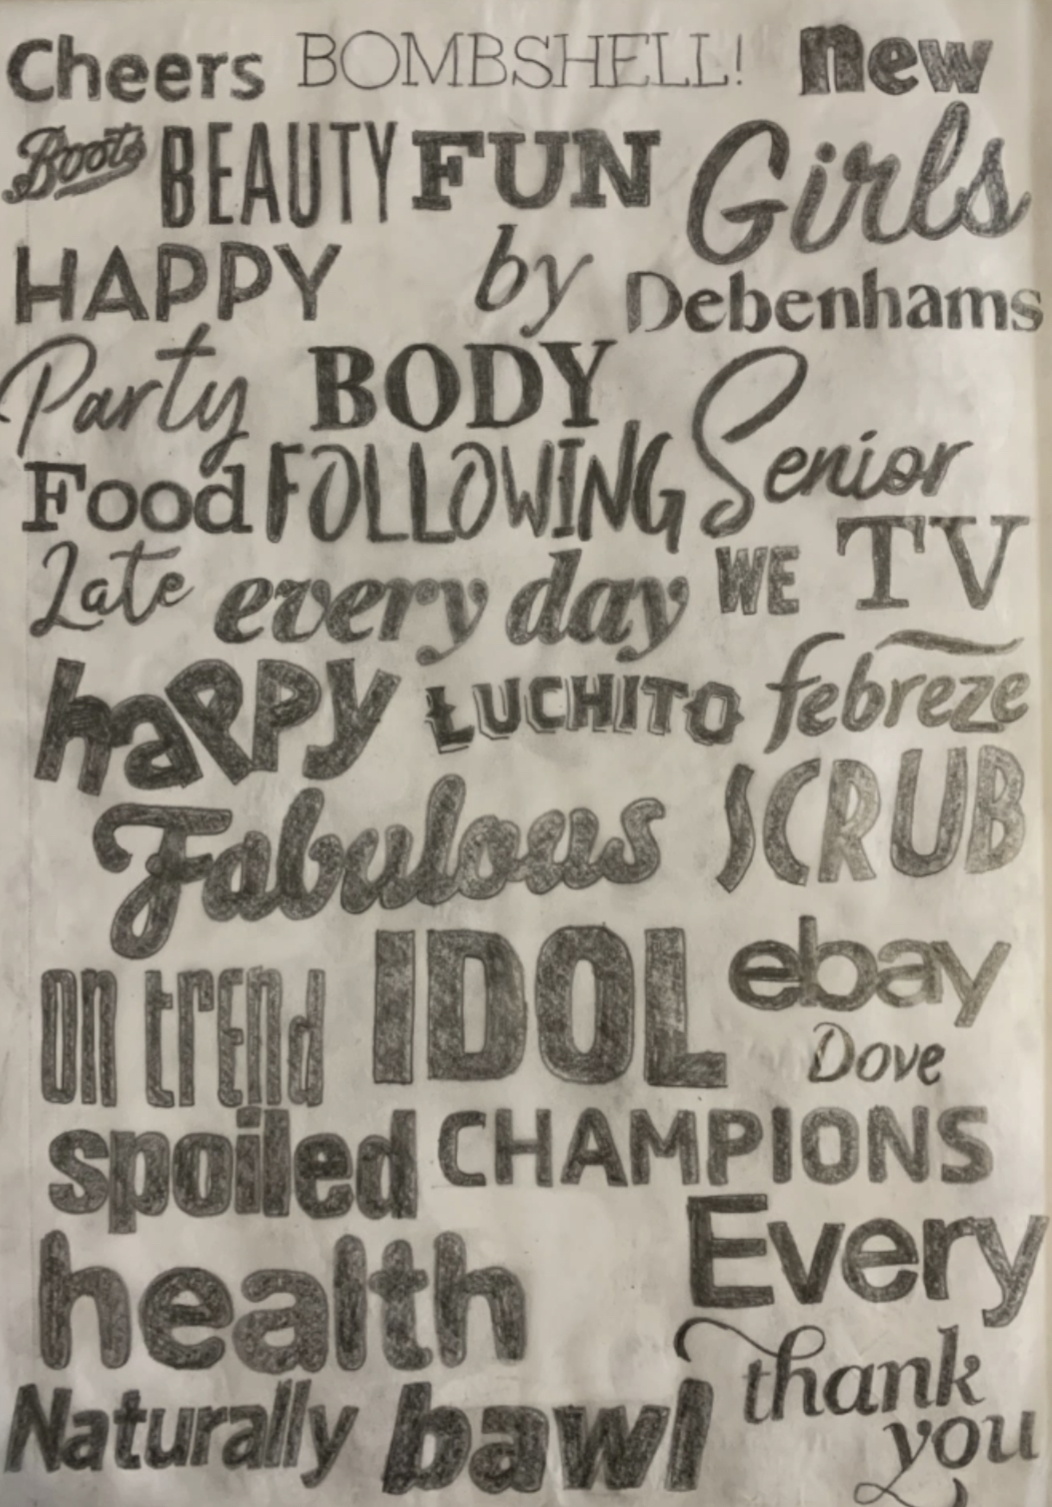 Cheers BOMBSHELL! new
Boots BEAUTY FUN Girls
HAPPY by Debenhams
Party BODY Senior
Food FOLLOWING
Late every day WE TV
happy ŁUCHITO febreze
Fabulous SCRUB
on trEnd IDOL ebay
Dove
spoiled CHAMPIONS
health Every
Naturally bawl thank
you